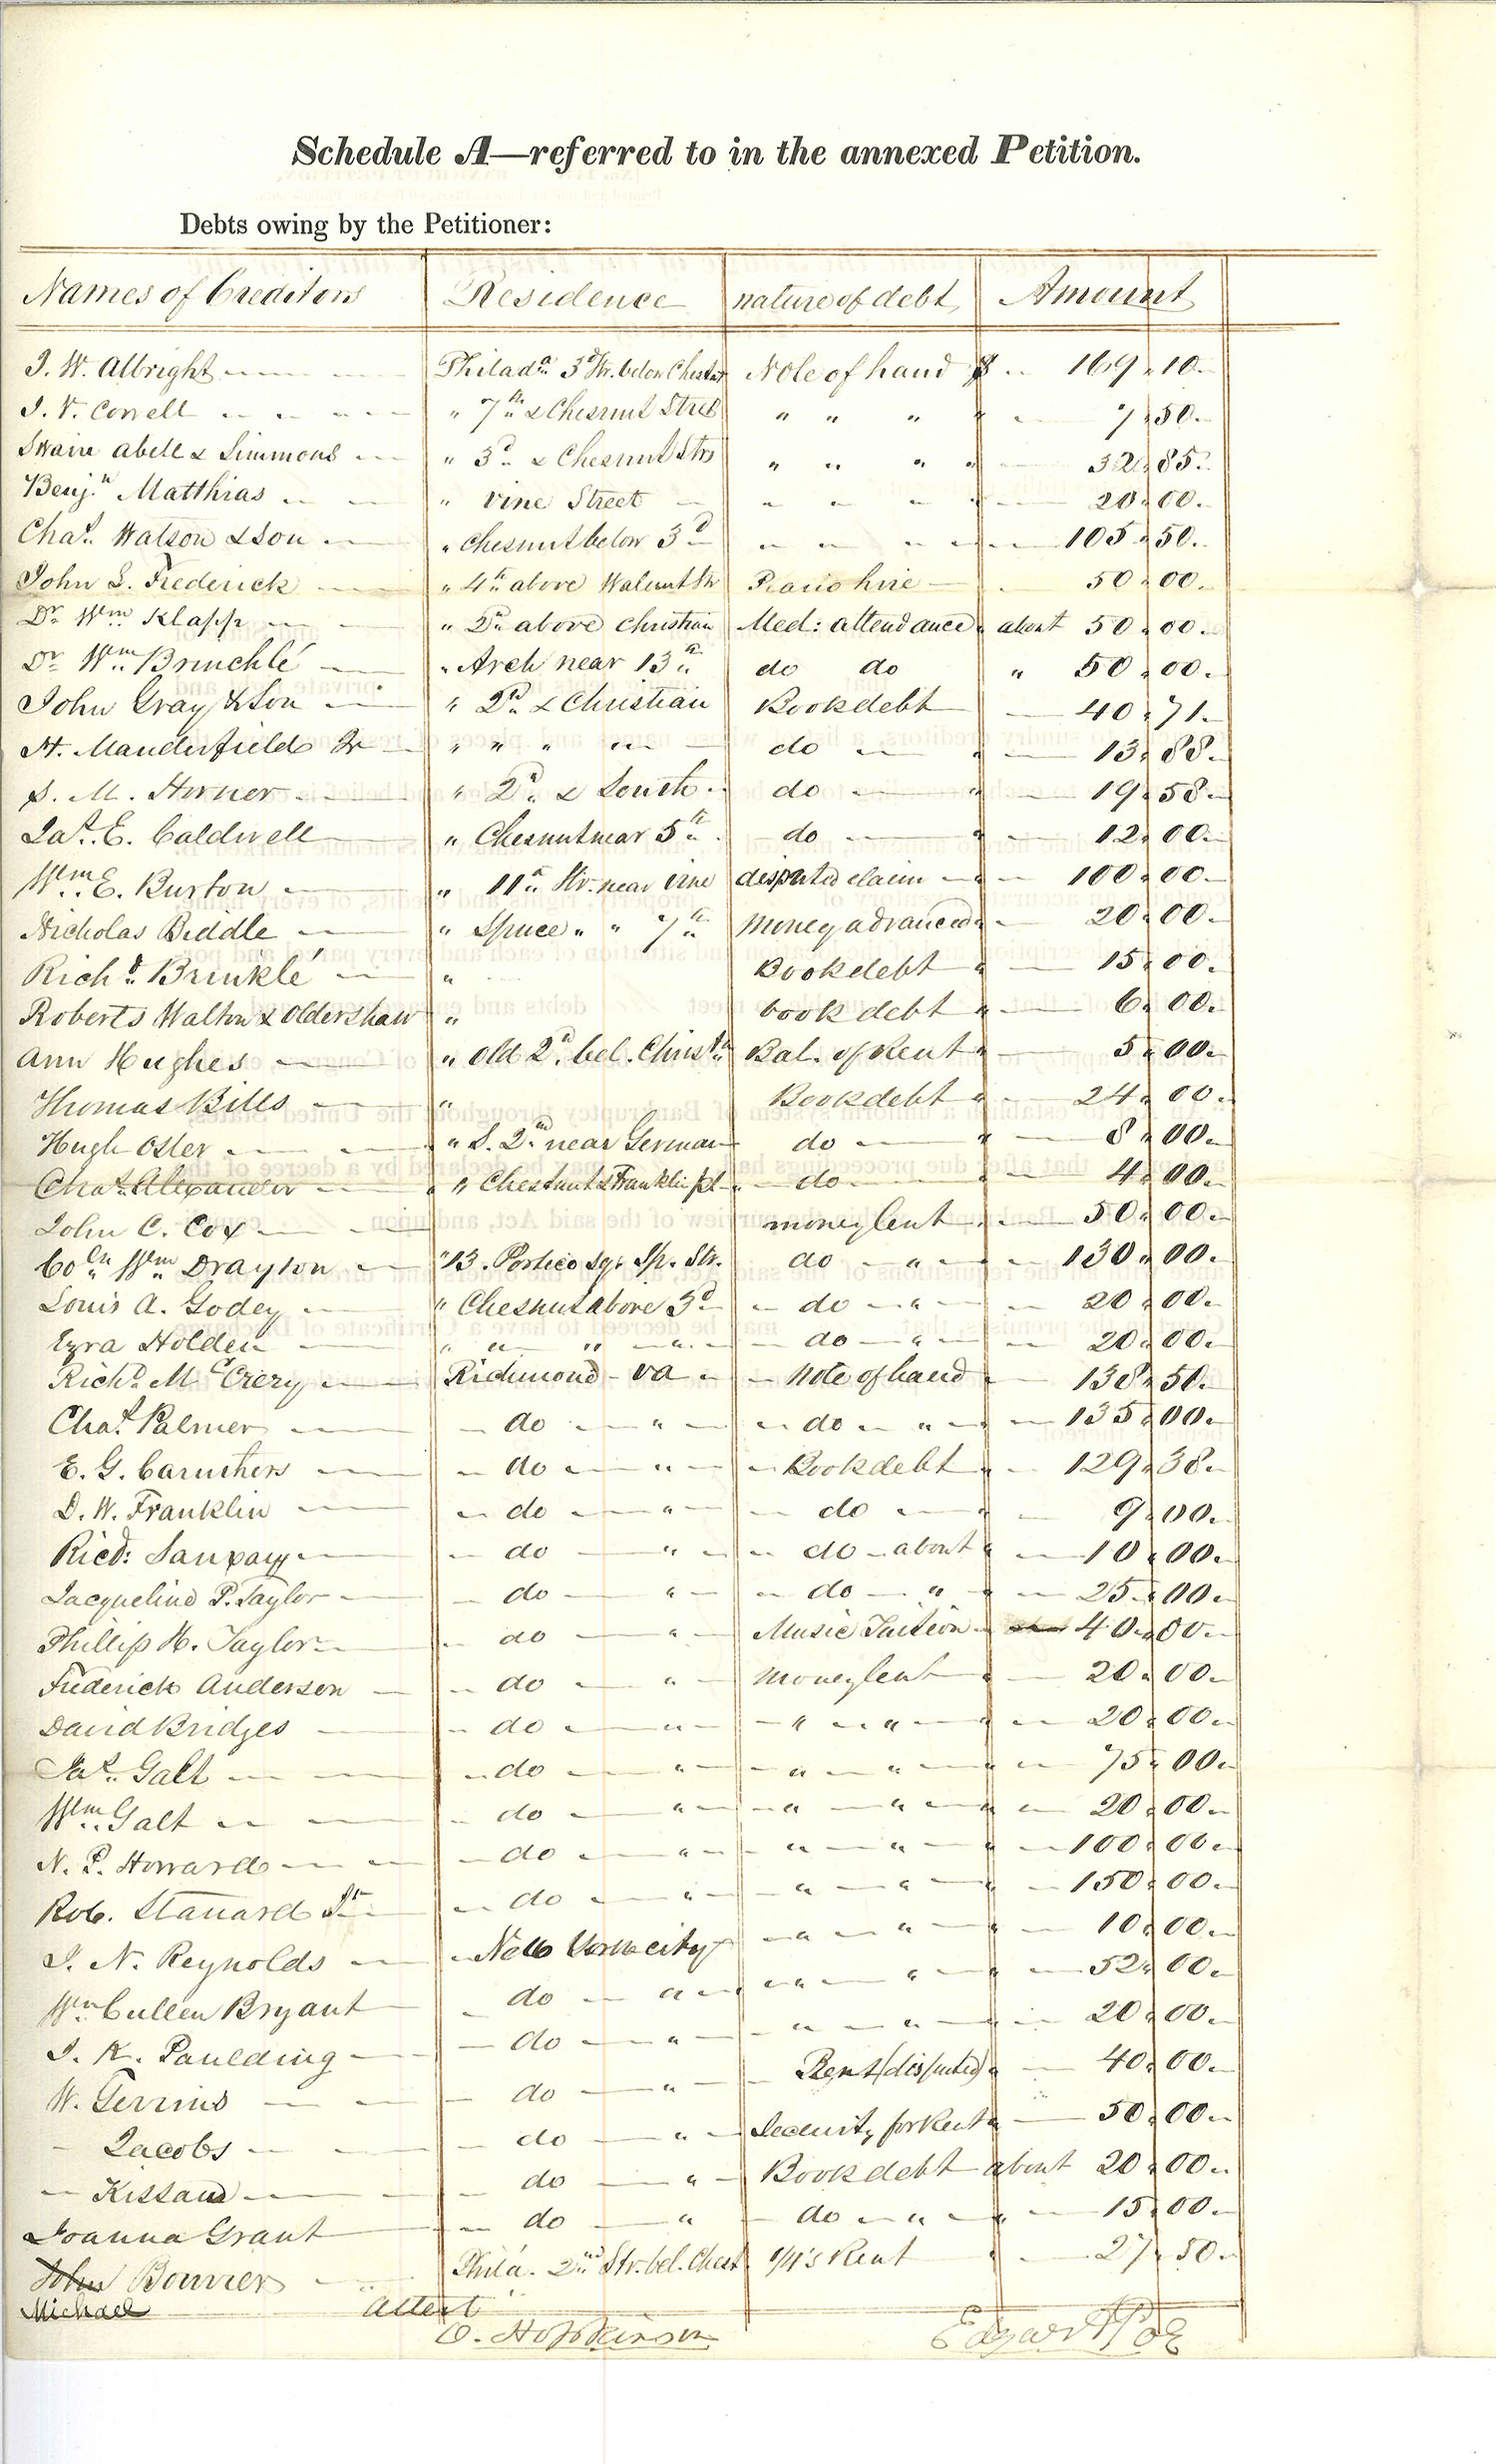 Schedule A—referred to in the annexed Petition.
Debts owing by the Petitioner:
Names of Creditors Residence nature of debt Amount
J. W. Albright Philada 3d Str. below Chesnut Note of hand $ 169 10
J. V. Cowell " 7th & Chesnut Street " " " 7 50
Swain Abell & Simmons " 3d & Chesnut Strs " " " " 32 85
Benjn Matthias " Vine Street " " " 20 00
Chas Watson & Son " Chesnut below 3d " " " 105 50
John S. Frederick " 4th above Walnut Str Piano hire 50 00
Dr Wm Klapp " 2d above Christian Med: attendance about 50 00
Dr Wm Brinchlé " Arch near 13th do do " 50 00
John Gray & Son " 2d & Christian Book debt 40 71
H. Manderfield Jr " " " " do 13 88
S. M. Horner " 2d & South do 19 58
Jas E. Caldwell " Chesnut near 5th do 12 00
Wm E. Burton " 11th Str. near Vine disputed claim 100 00
Nicholas Biddle " Spruce " " 7th Money advanced 20 00
Richd Brinklé " Book debt 15 00
Roberts Walton & Oldershaw " book debt 6 00
Ann Hughes " Old 2d bel. Christn Bal. of Rent 5 00
Thomas Bills " Book debt 24 00
Hugh Osler " S. 2nd near German do 8 00
Chas Alexander " Chestnut & Franklin pl do 4 00
John C. Cox money lent 50 00
Coln Wm Drayton " 13. Portico Sqr Sp. Str. do " 130 00
Louis A. Godey " Chesnut above 3d do " 20 00
Ezra Holden " " " " do " 20 00
Richd McCrery Richmond - Va Note of hand 138 50
Chas Palmer do " do " 135 00
E. G. Caruthers do " Book debt 129 38
D. W. Franklin do " do 9 00
Ricd: Sanxaxy do " do about 10 00
Jacqueline P. Taylor do " do " 25 00
Phillip H. Taylor do " Music Tuition 40 00
Frederick Anderson do " Money lent 20 00
David Bridges do " " " 20 00
Jas Galt do " " " 75 00
Wm Galt do " " " 20 00
N. P. Howard do " " " 100 00
Rob. Stanard Sr do " " " 150 00
J. N. Reynolds New York city " " 10 00
Wm Cullen Bryant do " " " 52 00
J. K. Paulding do " " " 20 00
W. Gerrins do " Rent (disputed) 40 00
Jacobs do " Security for Rent 50 00
Kissam do " Book debt about 20 00
Joanna Grant do " do " 15 00
John Bouvier Phila. 2nd Str. bel. Chest 1/4's Rent 27 50
Michael
Attest
O. Hopkinson Edgar A Poe